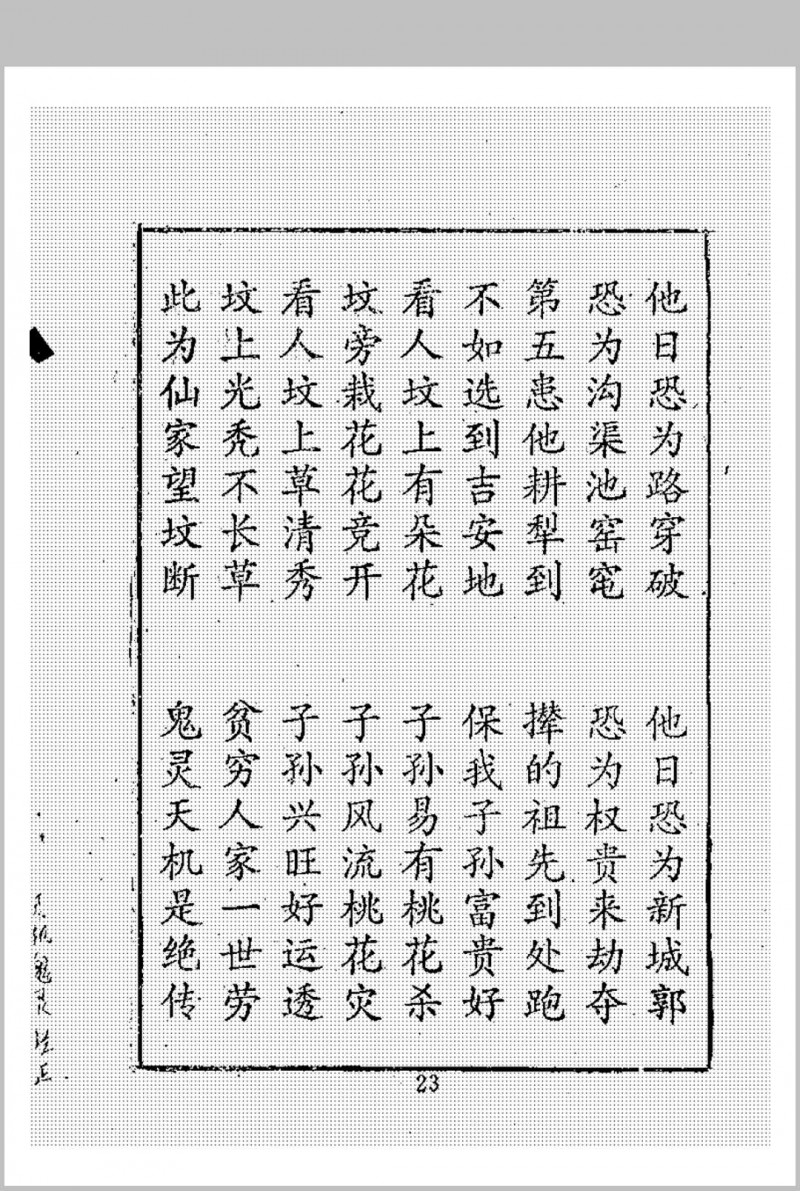 他日恐为路穿破　他日恐为新城郭
恐为沟渠池窑窀　恐为权贵来劫夺
第五患他耕犁到　撵的祖先到处跑
不如选到吉安地　保我子孙富贵好
看人坟上有朵花　子孙易有桃花杀
坟旁栽花花竞开　子孙风流桃花灾
看人坟上草清秀　子孙兴旺好运透
坟上光秃不长草　贫穷人家一世劳
此为仙家望坟断　鬼灵天机是绝传
23